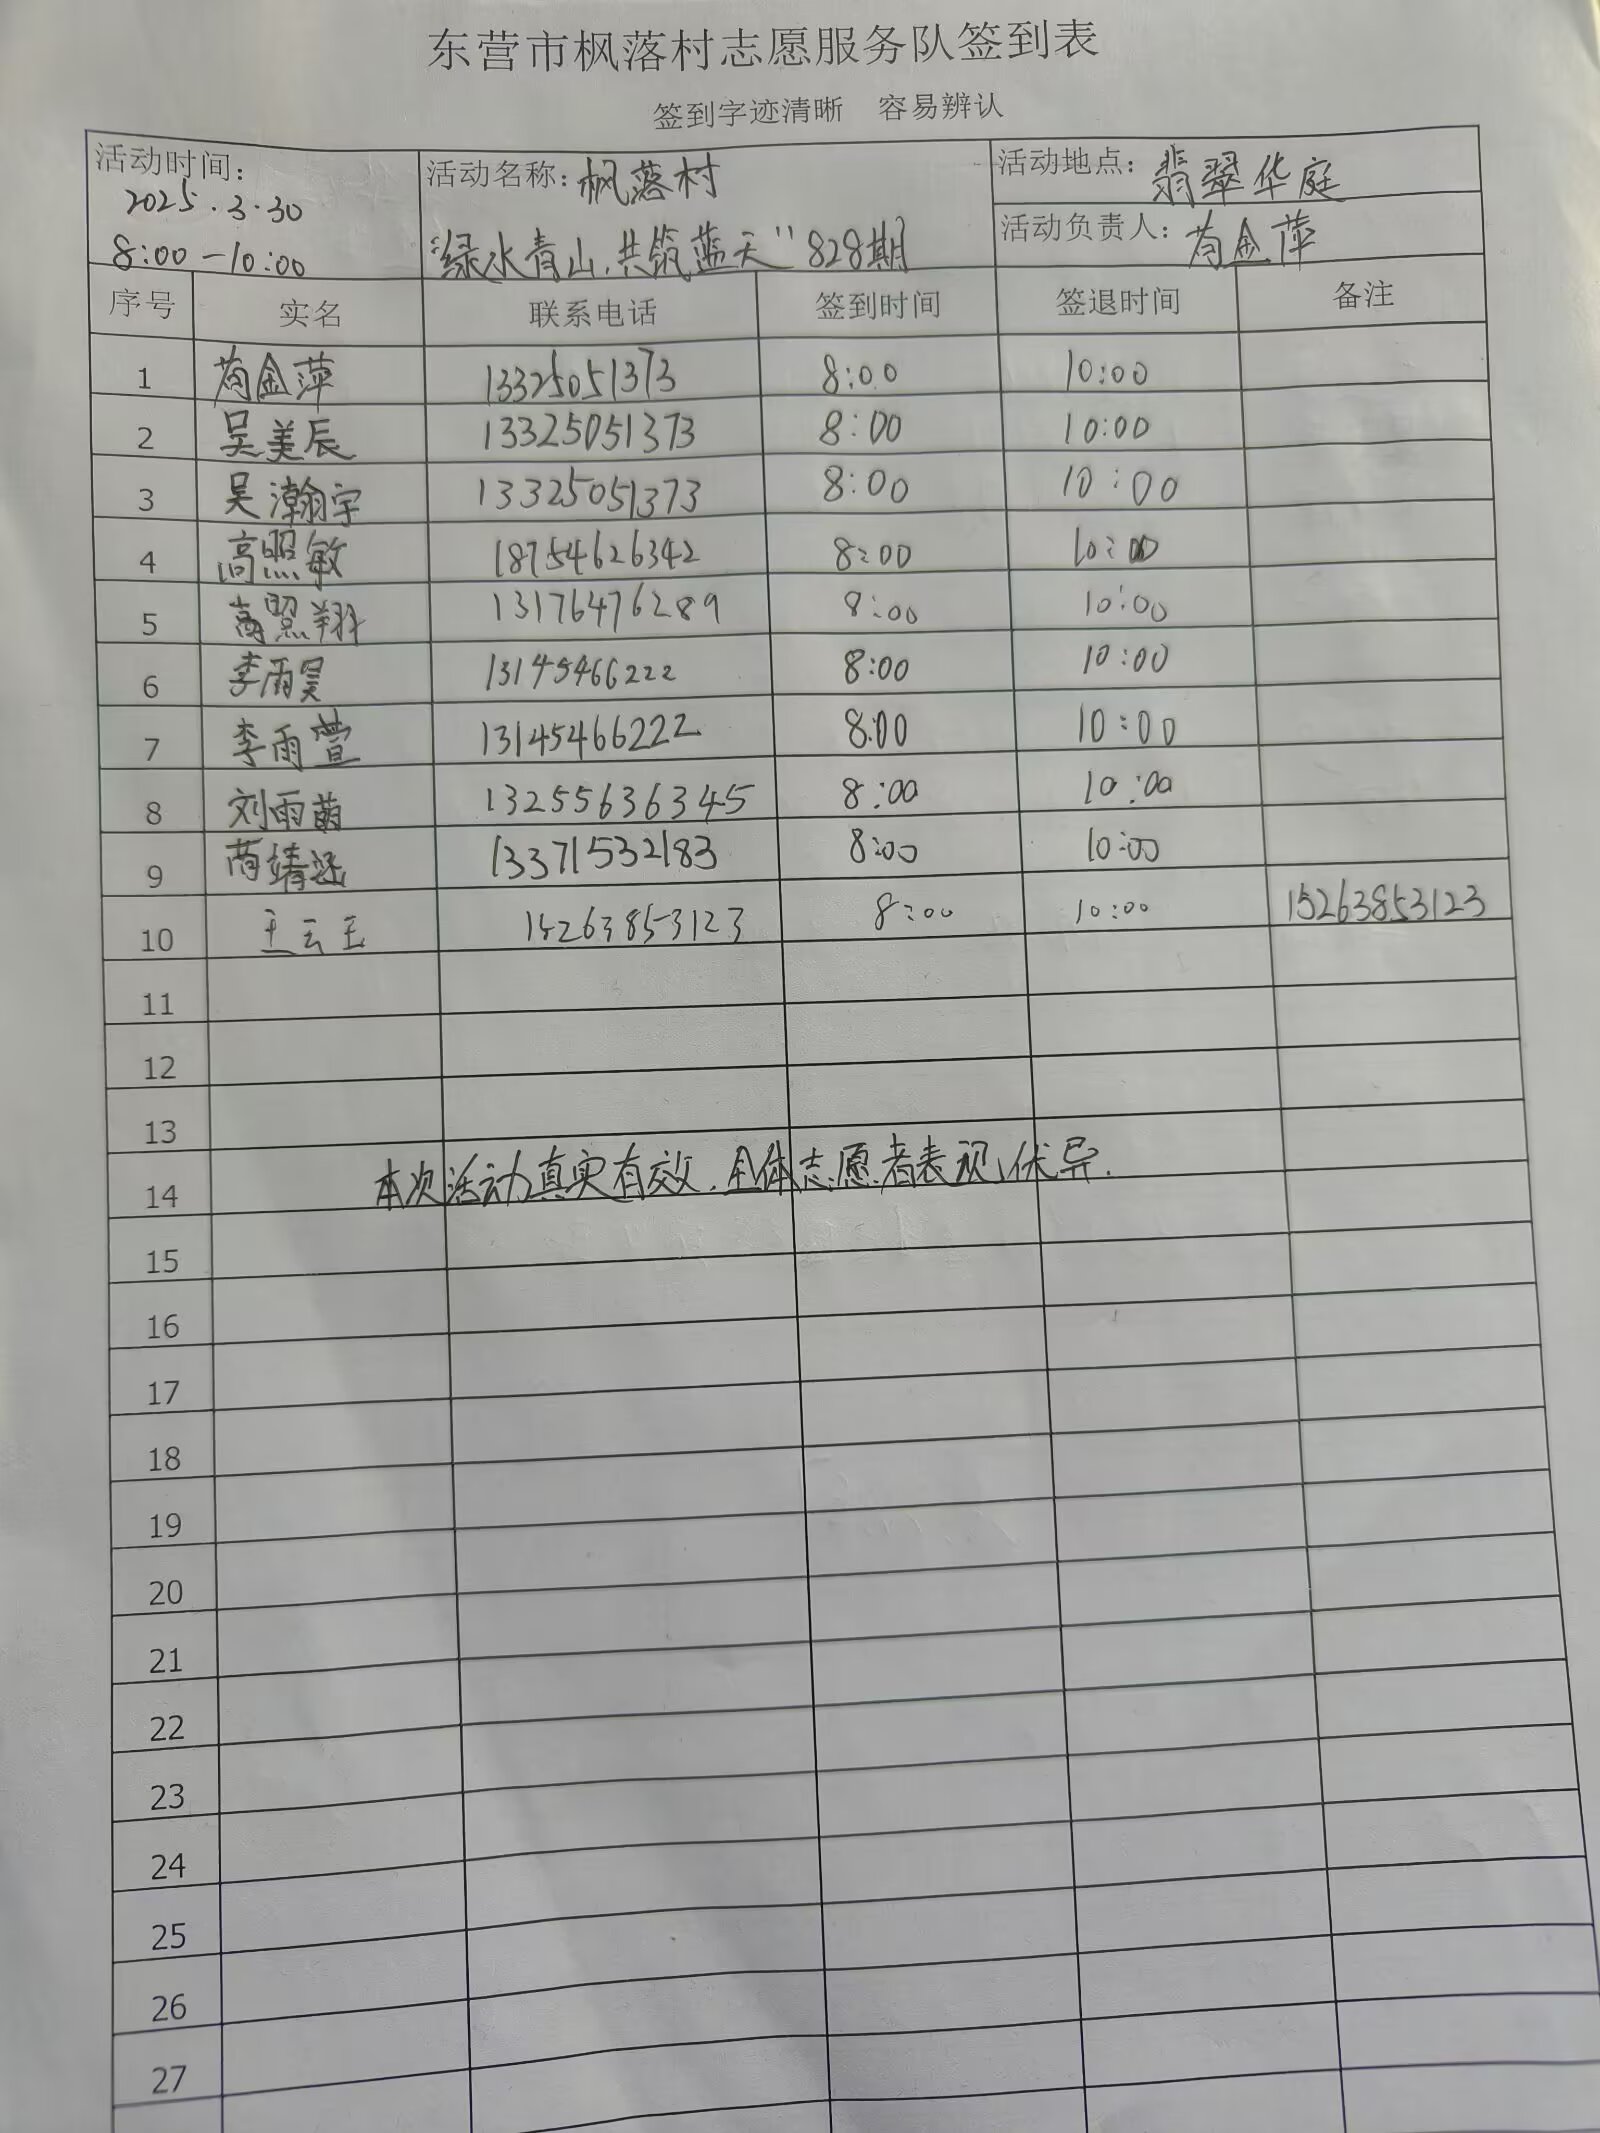 东营市枫落村志愿服务队签到表
签到字迹清晰 容易辨认
活动时间: 2025.3.30 8:00-10:00
活动名称: 枫落村 "绿水青山,共筑蓝天"828期
活动地点: 翡翠华庭
活动负责人: 苟金萍
序号 实名 联系电话 签到时间 签退时间 备注
1 苟金萍 13325051373 8:00 10:00
2 吴美辰 13325051373 8:00 10:00
3 吴瀚宇 13325051373 8:00 10:00
4 高照敏 18754626342 8:00 10:00
5 高照翔 13176476289 8:00 10:00
6 李雨昊 13145466222 8:00 10:00
7 李雨萱 13145466222 8:00 10:00
8 刘雨萌 13255636345 8:00 10:00
9 靖涵 13371532183 8:00 10:00
10 王云玉 15263853123 8:00 10:00 15263853123
11
12
13
14 本次活动真实有效,全体志愿者表现优异.
15
16
17
18
19
20
21
22
23
24
25
26
27